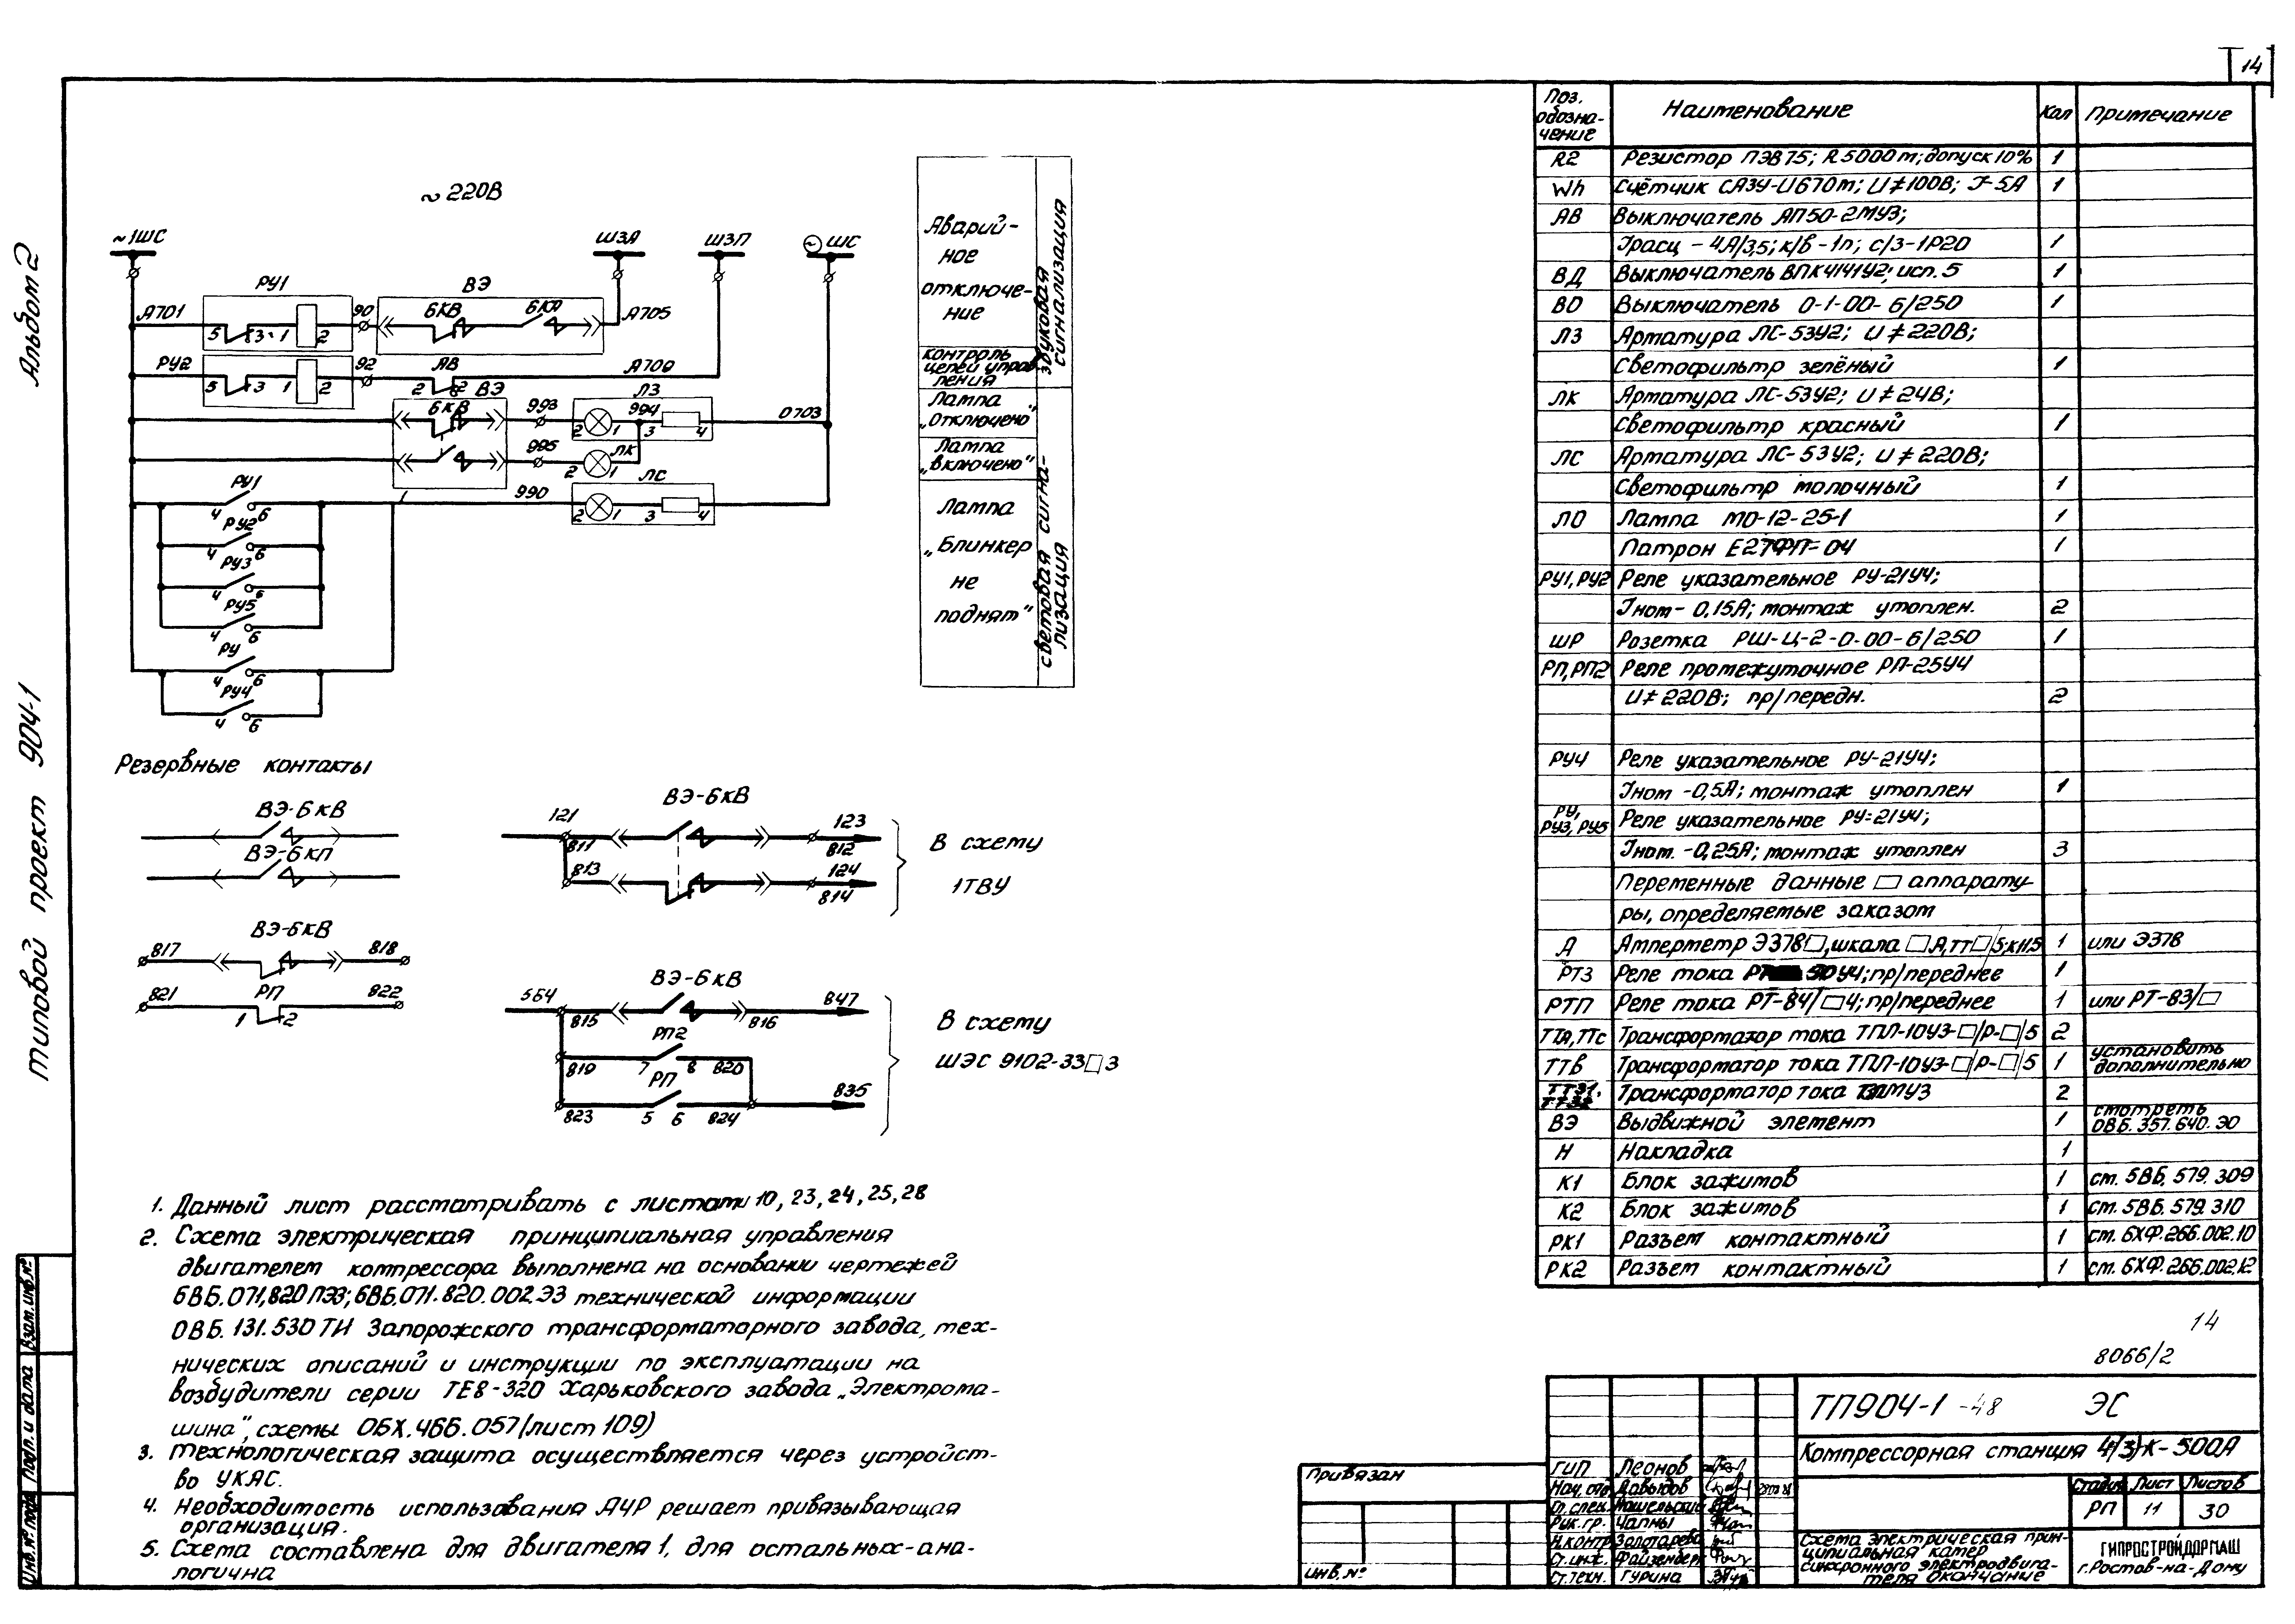 14
Альбом 2
Типовой проект 904-1
~220В
~1ШС
ШЗА
ШЗП
~ ШС
А701
РУ1
5 3 1 2
90
ВЭ
БКВ
БКА
А705
РУ2
5 3 1 2
92
АВ
2
А709
ВЭ
БКВ
993
ЛЗ
2 1 994 3 4
0703
995
ЛК
2 1
990
ЛС
2 1 3 4
РУ1
4 6
РУ2
4 6
РУ3
4 6
РУ5
4 6
РУ
4 6
РУ4
4 6
Аварий-
ное
отключе-
ние
контроль
цепей управ
ления
звуковая
сигнализация
Лампа
„Отключено"
Лампа
„включено"
Лампа
„Блинкер
не
поднят"
световая сигна-
лизация
Резервные контакты
ВЭ-БКВ
ВЭ-БКП
ВЭ-БКВ
817 818
РП
821 822
1 2
ВЭ-БКВ
121 123
811 812
813 124
814
В схему
1ТВУ
ВЭ-БКВ
564 847
815 816
РП2
819 7 8 820
РП
835
823 5 6 824
В схему
ШЭС 9102-33□3
1. Данный лист рассматривать с листами 10, 23, 24, 25, 28
2. Схема электрическая принципиальная управления
двигателем компрессора выполнена на основании чертежей
6ВБ.071,820ПЭ3; 6ВБ.071.820.002.Э3 технической информации
ОВБ.131.530ТИ Запорожского трансформаторного завода, тех-
нических описаний и инструкции по эксплуатации на
возбудители серии ТЕ8-320 Харьковского завода „Электрома-
шина", схемы ОБХ.466.057(лист 109)
3. Технологическая защита осуществляется через устройст-
во УКАС.
4. Необходимость использования АЧР решает привязывающая
организация.
5. Схема составлена для двигателя 1, для остальных-ана-
логична
Поз. обозна-чение Наименование Кол Примечание
R2 Резистор ПЭВ75; R500От; допуск 10% 1
Wh Счётчик СА3У-И670т; U≠100В; J-5А 1
АВ Выключатель АП50-2МУ3;
Jрасц - 4А/3,5; к/в-1п; с/з-1Р20 1
ВД Выключатель ВПК4141У2; исп. 5 1
ВО Выключатель 0-1-00-6/250 1
ЛЗ Арматура ЛС-53У2; U≠220В;
Светофильтр зелёный 1
ЛК Арматура ЛС-53У2; U≠24В;
Светофильтр красный 1
ЛС Арматура ЛС-53У2; U≠220В;
Светофильтр молочный 1
ЛО Лампа МО-12-25-1 1
Патрон Е27ФП-04 1
РУ1, РУ2 Реле указательное РУ-21У4;
Jном- 0,15А; монтаж утоплен. 2
ШР Розетка РШ-Ц-2-0-00-6/250 1
РП, РП2 Реле промежуточное РП-25У4
U≠220В; пр/передн. 2
РУ4 Реле указательное РУ-21У4;
Jном -0,5А; монтаж утоплен 1
РУ, РУ3, РУ5 Реле указательное РУ-21У4;
Jном. -0,25А; монтаж утоплен 3
Переменные данные □ аппарату-
ры, определяемые заказом
А Амперметр Э378□, шкала □А, тт□/5; к11,5 1 или Э378
РТЗ Реле тока 50У4; пр/переднее 1
РТП Реле тока РТ-84/□4; пр/переднее 1 или РТ-83/□
ТТА, ТТС Трансформатор тока ТПЛ-10У3-□/Р-□/5 2
ТТВ Трансформатор тока ТПЛ-10У3-□/Р-□/5 1 установить дополнительно
Трансформатор тока 2
ВЭ Выдвижной элемент 1 смотреть ОВБ.357.640.ЭО
Н Накладка 1
К1 Блок зажимов 1 ст. 5ВБ.579.309
К2 Блок зажимов 1 ст. 5ВБ.579.310
РК1 Разъем контактный 1 ст. 6ХФ.266.002.10
РК2 Разъем контактный 1 ст. 6ХФ.266.002.12
14
8066/2
ТП904-1 -48 ЭС
Компрессорная станция 4(3)К-500А
Стадия Лист Листов
РП 11 30
Схема электрическая прин-
ципиальная камер
синхронного электродвига-
теля Окончание
ГИПРОСТРОЙДОРМАШ
г.Ростов-на-Дону
ГИП Леонов
Нач. отд Давыдов
Гл. спец.
Рук. гр. Чапны
Н.контр Золотарева
Ст. инж.
Ст. техн. Гурина
Привязан
инв. №
Инв. № подл. Подп. и дата Взам. инв. №